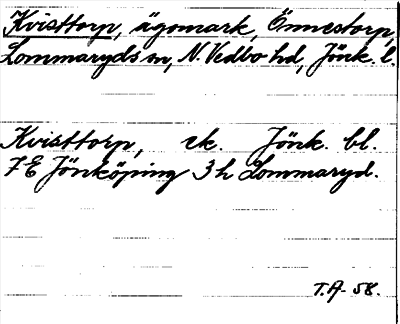 Kvisttorp, ägomark, Önnestorp,
Lommaryds sn, N. Vedbo hd, Jönk. l.
Kvisttorp, ek. Jönk. bl.
7E Jönköping 3h Lommaryd.
T.A. 58.